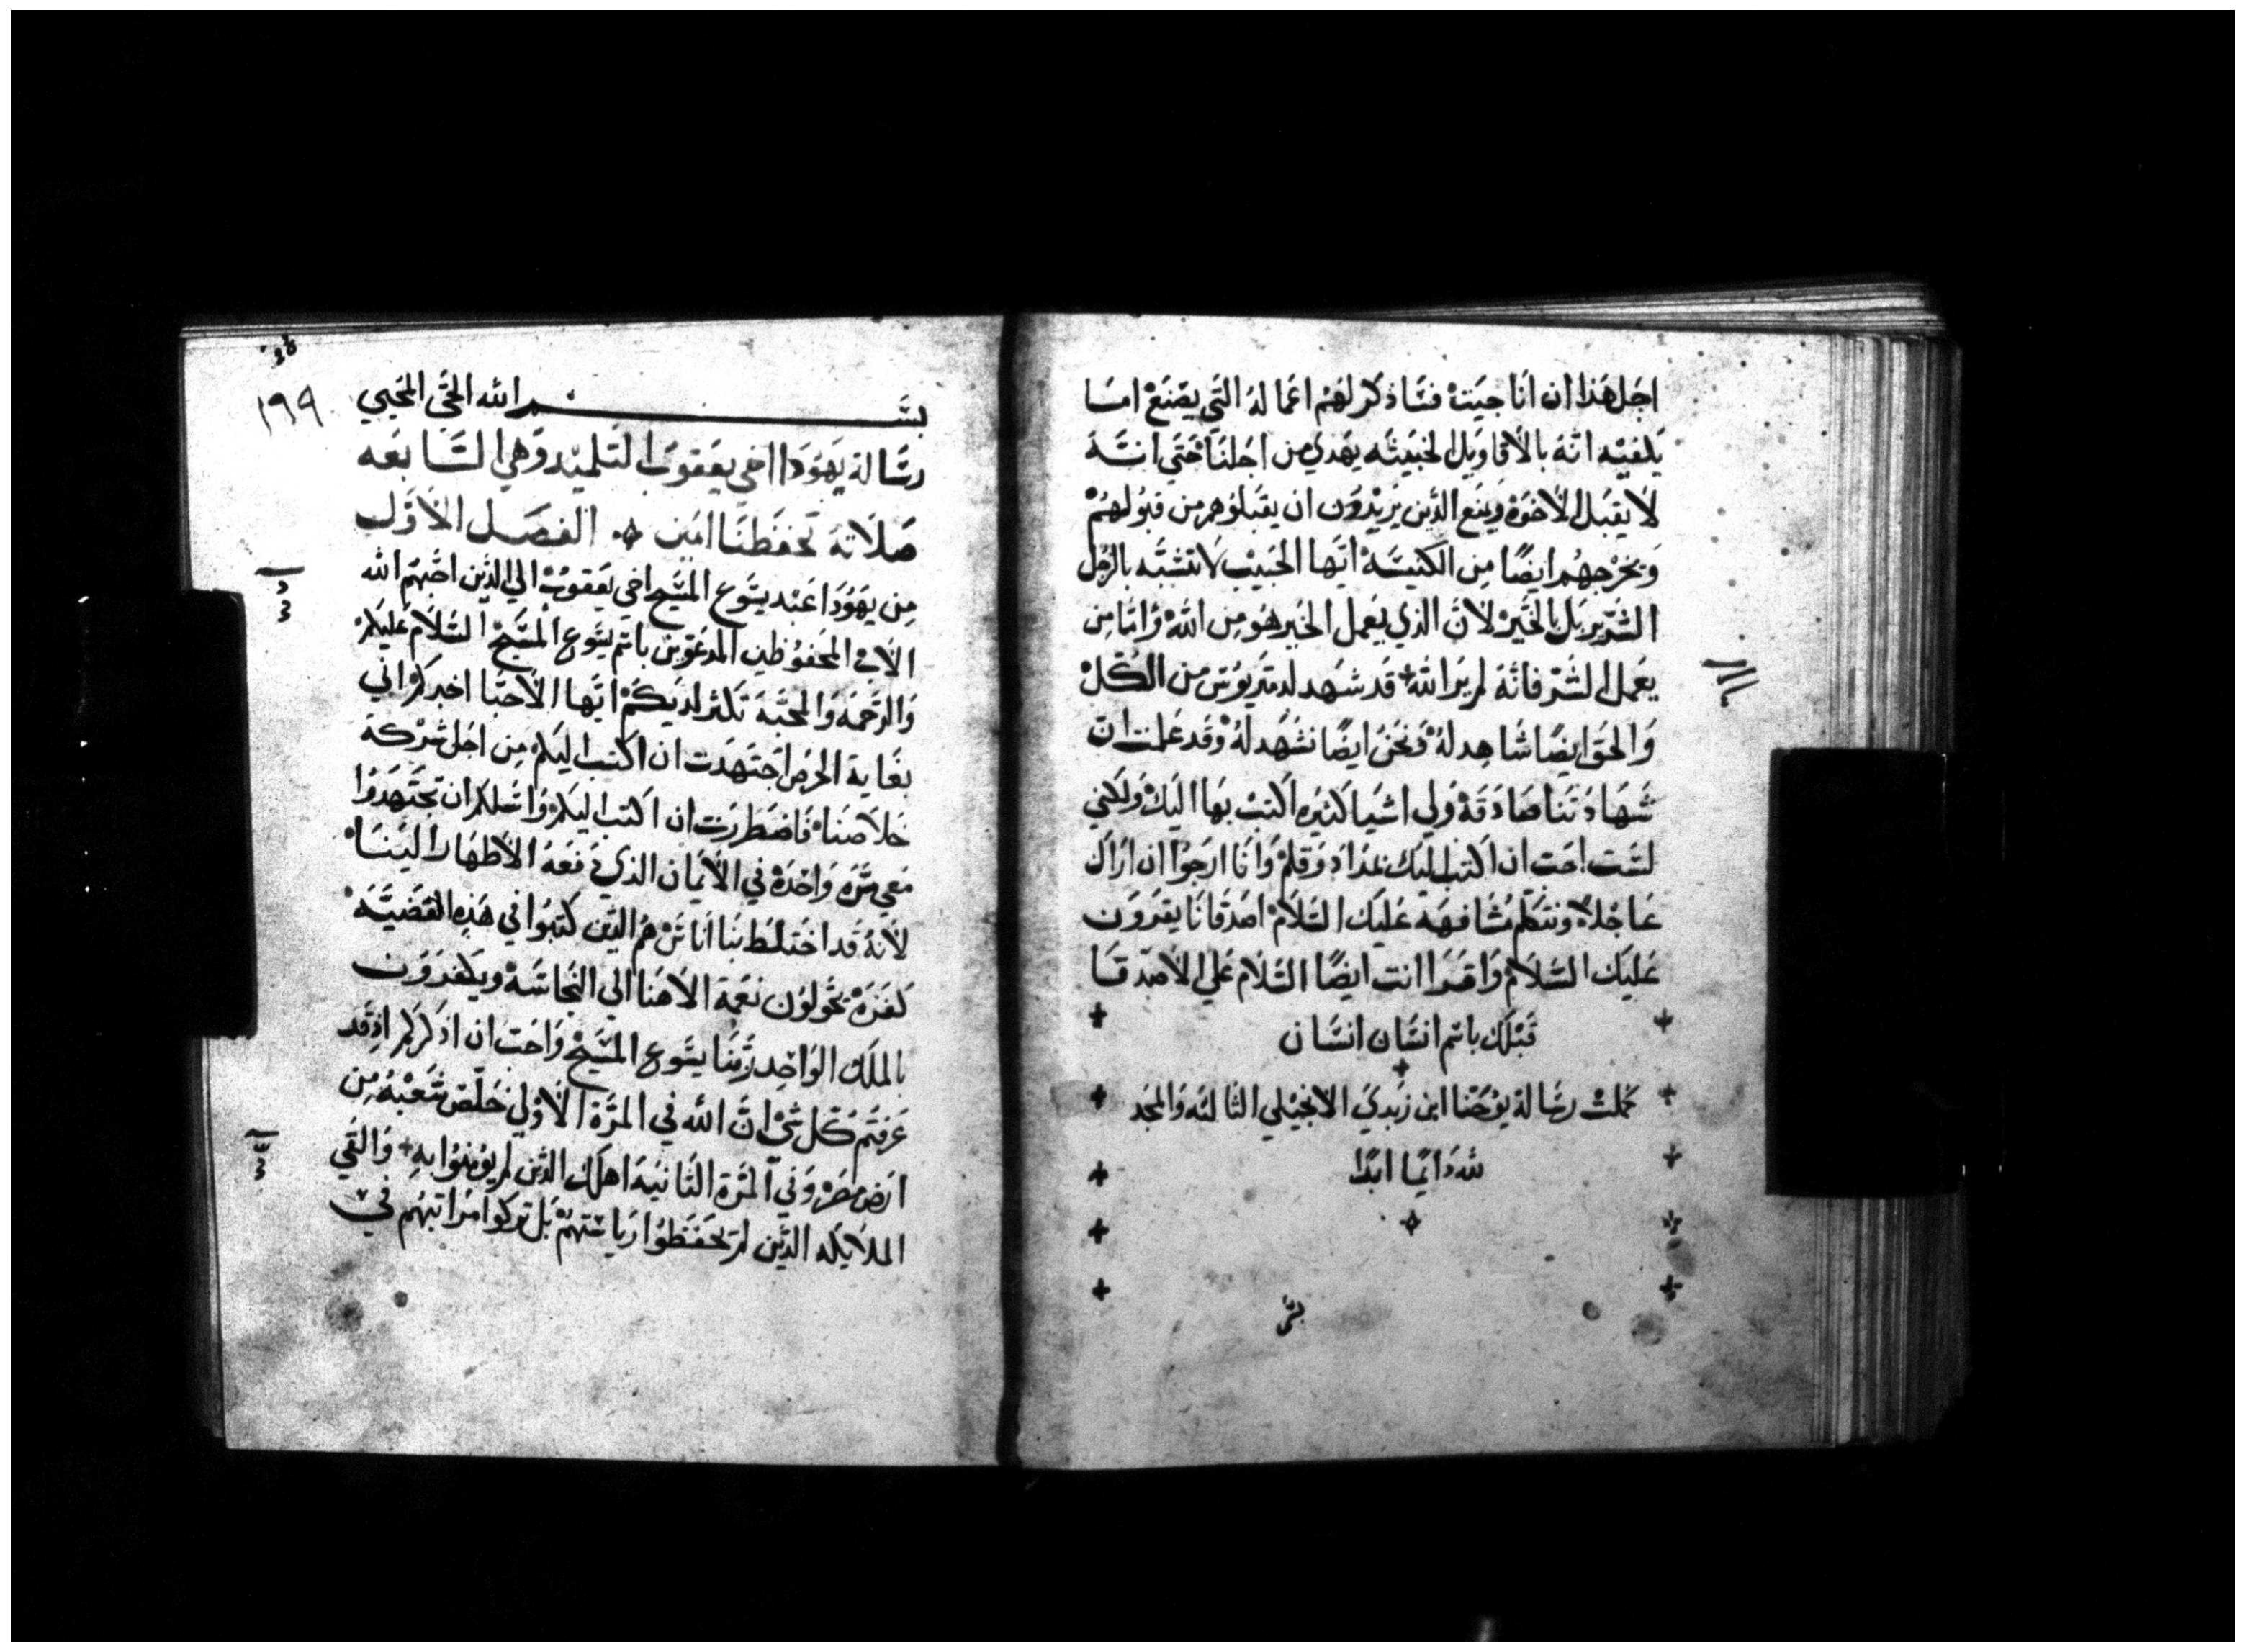 اجل هذا ان انا جيت فسَاذكر لهم اعماله التي يصنع اما
يكفيه انه بالاقاويل الخبيثه يهدي من اجلنا حتي انه
لا يقبل الاخوه ويمنع الذين يريدون ان يقبلوهم من قبولهم
ويخرجهم ايضًا من الكنيسَه ايها الحبيب لا تتشبه بالرجل
الشرير بل بالخير لان الذي يعمل الخير هو من الله واما من
يعمل الشر فانه لم ير الله قد شهد لدمتريوس من الكل
والحق ايضًا شاهد له ونحن ايضًا نشهد له وقد علمت ان
شهادتنا صادقه ولي اشيا كثيره اكتب بها اليك ولكني
لست احب ان اكتب اليك بمداد وقلم وانا ارجوا ان اراك
عاجلا ونتكلم مشافهه عليك السلام اصدقانا يقرون
عليك السلام واقرا انت ايضًا السلام علي الاصدقا
قبلك باسم انسان انسان
كملت رسالة يوحنا ابن زبدي الانجيلي الثالثه والمجد
لله دايما ابدا
بسم الله الحي المحيي
رسالة يهودا اخي يعقوب التلميد وهي السابعه
صلاته تحفظنا امين الفصل الاول
من يهودا عبد يسوع المسيح اخي يعقوب الي الذين احبهم الله
الاب المحفوظين المدعوين باسم يسوع المسيح السلام عليكم
والرحمه والمحبه تكثر لديكم ايها الاحبا اخبركم اني
بغاية الحرص اجتهدت ان اكتب اليكم من اجل شركة
خلاصنا فاضطررت ان اكتب اليكم واسلكم ان تجتهدوا
معي مره واحده في الايمان الذي دفعه الاطهار الينا
لانه قد اختلط بنا اناس هم الذين كتبوا في هذه القضيه
كفره يحولون نعمة الاهنا الي النجاسه ويكفرون
بالملك الواحد ربنا يسوع المسيح واحب ان اذكركم اذ قد
عرفتم كل شي ان الله في المرة الاولي خلص شعبه من
ارض مصر وفي المرة الثانيه اهلك الذين لم يومنوا به والقي
الملايكه الذين لم يحفظوا رياستهم بل تركوا مراتبهم في
١٦٩